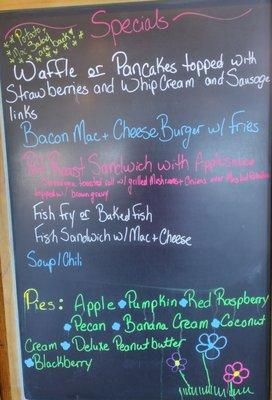 Specials
Potato,
Mac salad
are back!
Waffle or Pancakes topped with
Strawberries and Whip Cream and Sausage
links
Bacon Mac + Cheese Burger w/ Fries
Roast Sandwich with Applesauce
toasted roll w/ grilled Mushrooms + Onions over Mashed Potatoes
topped w/ brown gravy
Fish Fry or Baked Fish
Fish Sandwich w/ Mac + Cheese
Soup/Chili
Pies: Apple Pumpkin Red Raspberry
Pecan Banana Cream Coconut
Cream Deluxe Peanut butter
Blackberry